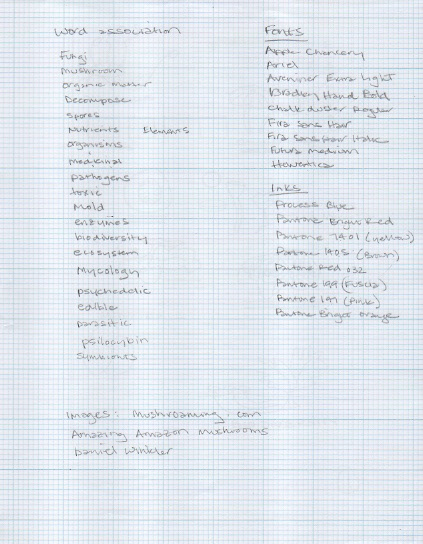 Word association
Fungi
Mushroom
organic matter
Decompose
spores
Nutrients Elements
organisms
medicinal
pathogens
toxic
Mold
enzymes
biodiversity
ecosystem
Mycology
psychedelic
edible
parasitic
psilocybin
symbionts
Fonts
Apple Chancery
Ariel
Bradley Hand Bold
Chalk duster
Fira Sans Hair
Fira Sans Hair Italic
Futura Medium
Inks
Process Blue
Pantone Bright Red
Pantone 7401 (yellow)
Pantone 1405 (Brown)
Pantone Red 032
Pantone 199 (Fuscia)
Pantone (Pink)
Pantone Bright Orange
Images: Mushroaming.com
Amazing Amazon Mushrooms
Daniel Winkler